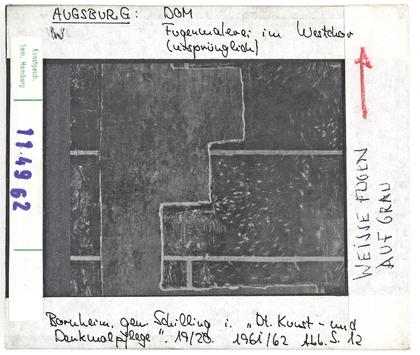 AUGSBURG: DOM
Fugenmalerei im Westchor
(ursprünglich)
Kunstgesch.
Sem. Hamburg
11.4962
WEISSE FUGEN
AUF GRAU
Bornheim, gen. Schilling i. „Dt. Kunst- und
Denkmalpflege". 19/20. 1961/62 Abb. S. 12